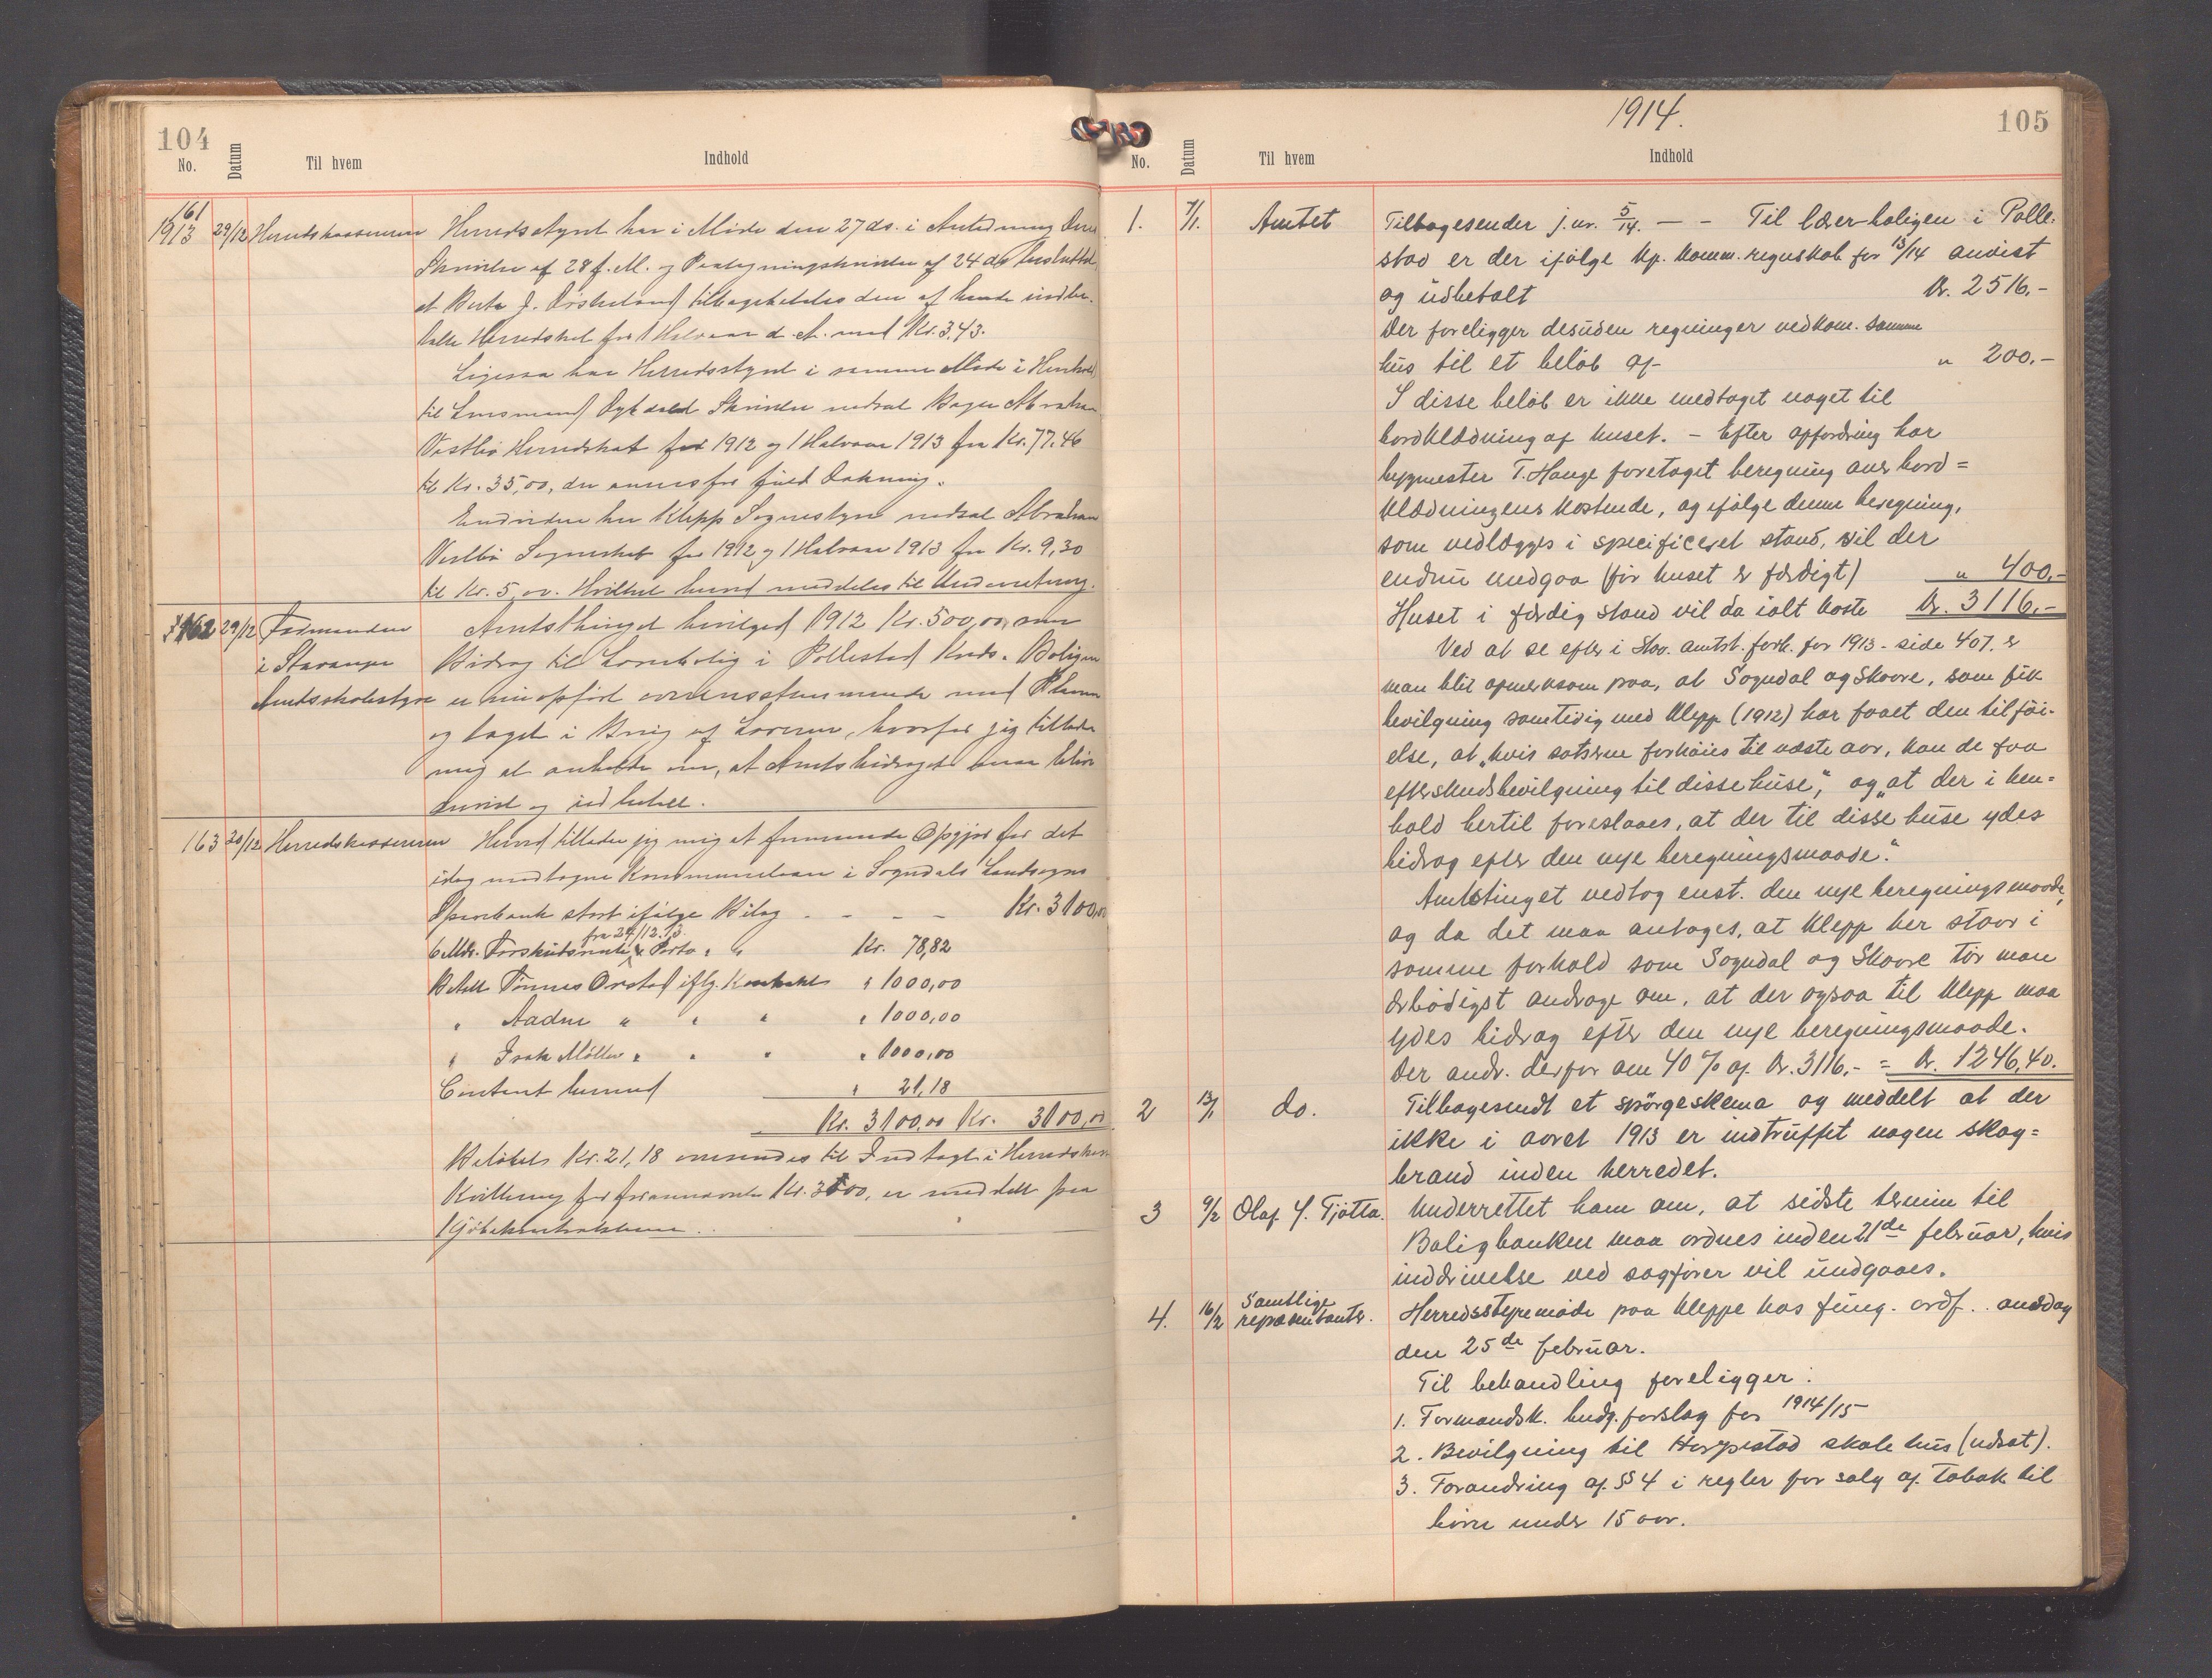 104
No.
Datum
Til hvem
Indhold
161
1913 29/12 Herredskassereren Herredsstyret har i Møde den 27 ds. i Anledning Deres
Skrivelse af 28 f. M. og Paategningsskrivelse af 24 ds besluttet,
at Berta J. tilbagebetales den af hende indbe-
talte Herredsskat for 1 Halvaar d. A. med Kr. 3,43.
Ligesaa har Herredsstyret i samme Møde i Henhold
til Lensmand Skrivelse nedsat Bager Abraham
Vestbø Herredskat for 1912 og 1 Halvaar 1913 fra Kr. 77,46
til Kr. 35,00, der ansees for fuld Dækning.
Endvidere har Klepp Sognestyre nedsat Abraham
Vestbø Sogneskat for 1912 og 1 Halvaar 1913 fra Kr. 9,30
til Kr. 5,00. Hvilket herved meddeles til Underretning.
162 29/12 Formanden Amtsthinget bevilged 1912 Kr. 500,00 som
i Stavanger Bidrag til Lærerbolig i Pollestad Kreds. Boligen
Amtsskolestyre er nu opført overensstemmende med Planen
og taget i Brug af Læreren, hvorfor jeg tillader
mig at anholde om, at Amtsbidraget maa blive
anvist og udbetalt.
163 30/12 Herredskassereren Herved tillader jeg mig at fremsende Opgjør for det
idag modtagne Kommunelaan i Sogndals Landsogns
Sparebank stort ifølge Bilag - - - Kr. 3100,00
fra 29/12.13.
6 Mdr. Forskudsrente & Porto " " Kr. 78,82
Betalt Tønnes Orstad iflg. Kontrakt " 1000,00
" Aadne " " " " 1000,00
" Isak Møller " " " " 1000,00
Contant herved " 21,18
Kr. 3100,00 Kr. 3100,00
Beløbet Kr. 21,18 oversendes til Indtægt i Herredskassen
Kvittering for forannævnte Kr. 3000, er meddelt paa
Kjøbekontrakterne.
1914.
105
No.
Datum
Til hvem
Indhold
1. 7/1. Amtet Tilbagesender j.nr. 5/14. — - Til lærerboligen i Polle-
stad er der ifølge kp. komm. regnskab for 13/14 anvist
og udbetalt Kr. 2516.-
Der foreligger desuden regninger vedkom. samme
hus til et beløb af " 200.-
I disse beløb er ikke medtaget noget til
bordklædning af huset. - Efter opfordring har
bygmester T. Hauge foretaget beregning over bord=
klædningens kostende, og ifølge denne beregning,
som vedlægges i specificeret stand, vil der
endnu medgaa (før huset er færdigt) " 400.-
Huset i færdig stand vil da ialt koste Kr. 3116.-
Ved at se efter i Stav. amtst. forh. for 1913 - side 407. er
man blit opmerksom paa, at Sogndal og Skaare, som fik
bevilgning samtidig med Klepp (1912) har faaet den tilføi-
else, at „hvis satserne forhøies til næste aar, kan de faa
efterskudsbevilgning til disse huse", og „at der i hen=
hold hertil foreslaaes, at der til disse huse ydes
bidrag efter den nye beregningsmaade."
Amtstinget vedtog enst. den nye beregningsmaade,
og da det maa antages, at Klepp her staar i
samme forhold som Sogndal og Skaare tør man
ærbødigst andrage om, at der ogsaa til Klepp maa
ydes bidrag efter den nye beregningsmaade.
Der andr. derfor om 40 % af Kr. 3116.- = Kr. 1246,40.
2 13/1 do. Tilbagesendt et spørgeskema og meddelt at der
ikke i aaret 1913 er indtruffet nogen skog=
brand inden herredet.
3 9/2 Olaf Y. Tjøtta. Underrettet ham om, at sidste termin til
Boligbanken maa ordnes inden 21de februar, hvis
inddrivelse ved sagfører vil undgaaes.
4. 16/2 Samtlige repræsentanter. Herredsstyremøde paa Kleppe hos fung. ordf. onsdag
den 25de februar.
Til behandling foreligger:
1. Formandsk. budg. forslag for 1914/15
2. Bevilgning til Horpestad skolehus (udsat).
3. Forandring af § 4 i regler for salg af tobak til
børn under 15 aar.